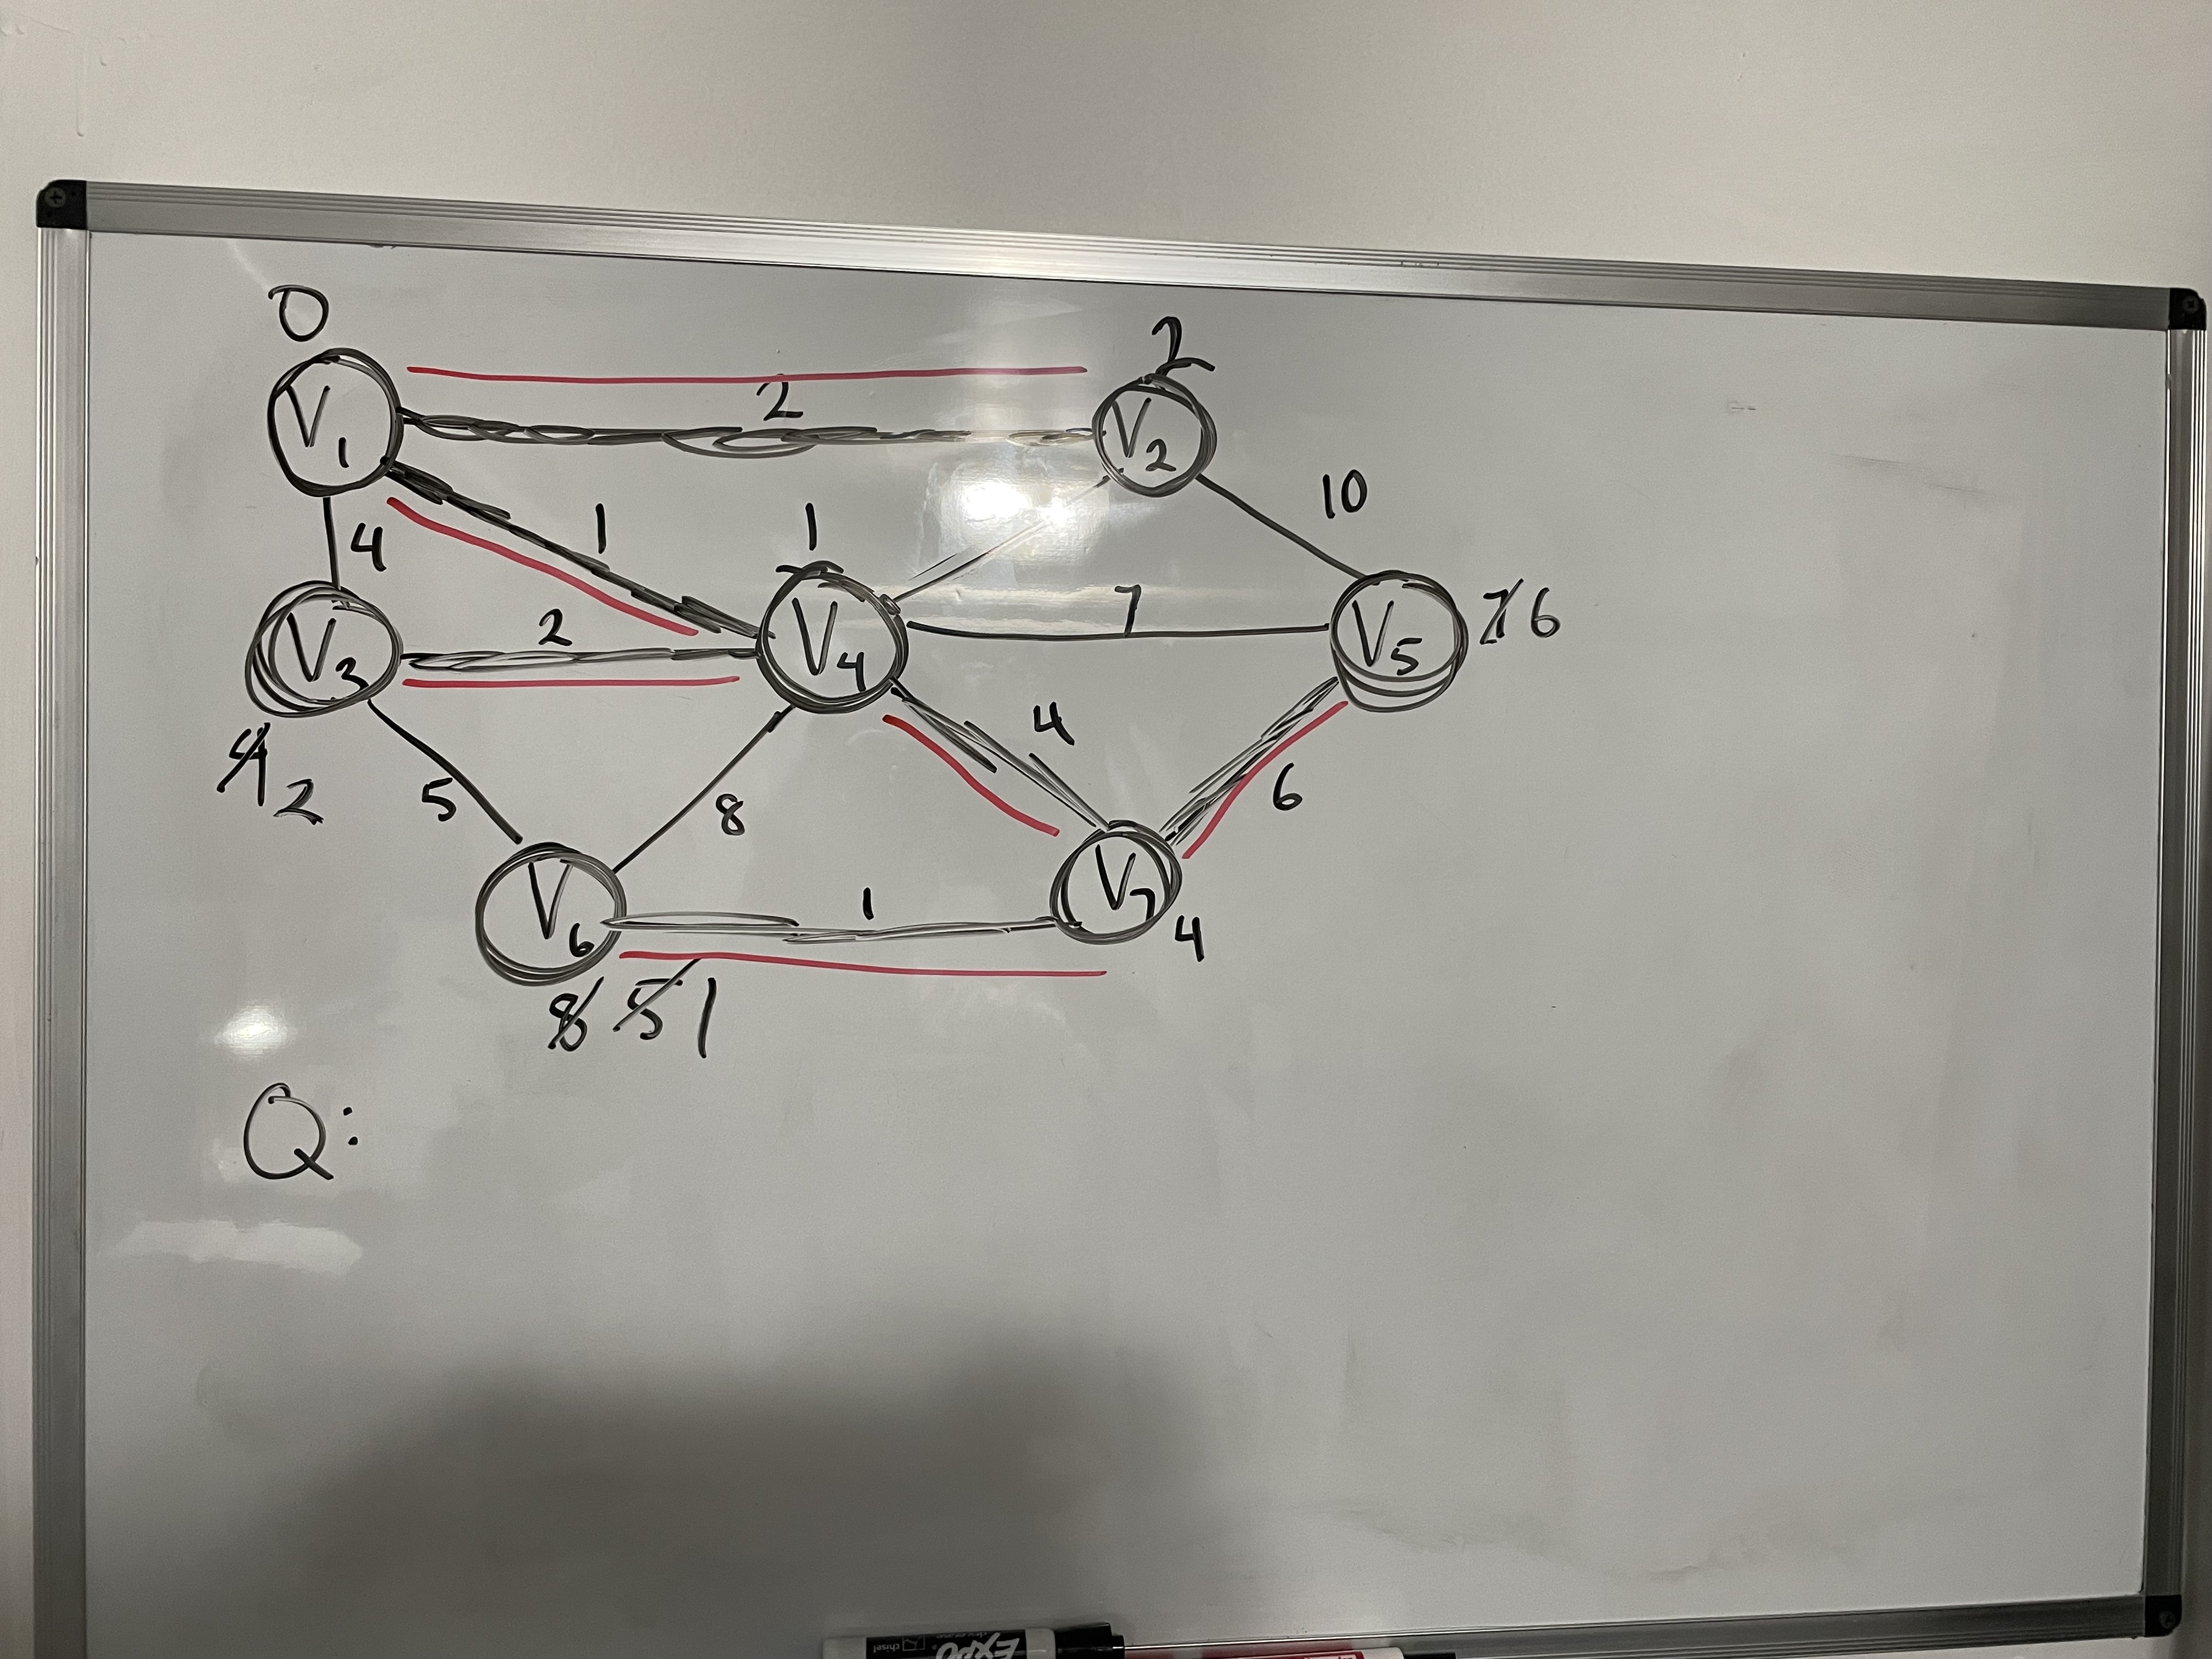 0
2
V1
2
V2
10
4
1
1
V3
2
V4
7
V5
7 6
4 2
5
8
4
6
V6
1
V7
4
8 5 1
Q:
EXPO
chisel